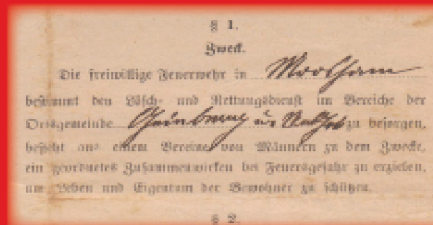 § 1.
Zweck.
Die freiwillige Feuerwehr in Moosham
bestimmt den Lösch- und Rettungsdienst im Bereiche der
Ortsgemeinde zu besorgen,
besteht aus einem Vereine von Männern zu dem Zwecke,
ein geordnetes Zusammenwirken bei Feuersgefahr zu erzielen,
um Leben und Eigentum der Bewohner zu schützen.
§ 2.